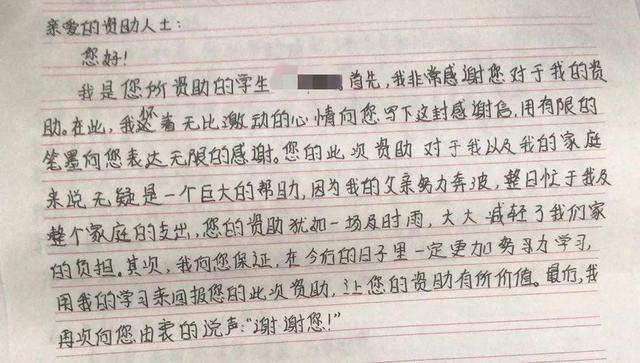 亲爱的资助人士:
您好!
我是您所资助的学生 。首先,我非常感谢您对于我的资
助。在此,我怀着无比激动的心情向您写下这封感谢信,用有限的
笔墨向您表达无限的感谢。您的此次资助对于我以及我的家庭
来说无疑是一个巨大的帮助,因为我的父亲努力奔波,整日忙于我及
整个家庭的支出,您的资助犹如一场及时雨,大大减轻了我们家
的负担。其次,我向您保证,在今后的日子里一定更加努力学习,
用我的学习来回报您的此次资助,让您的资助有所价值。最后,我
再次向您由衷的说声:“谢谢您!”